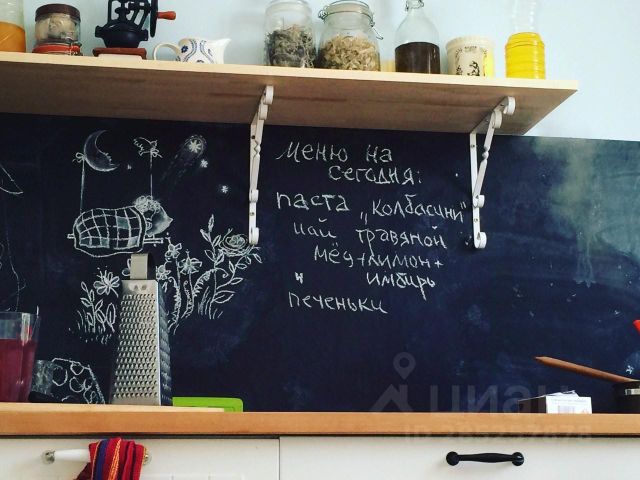 меню на
сегодня:
паста „колбасини"
чай травяной
мёд+лимон+
имбирь
и
печеньки
циан